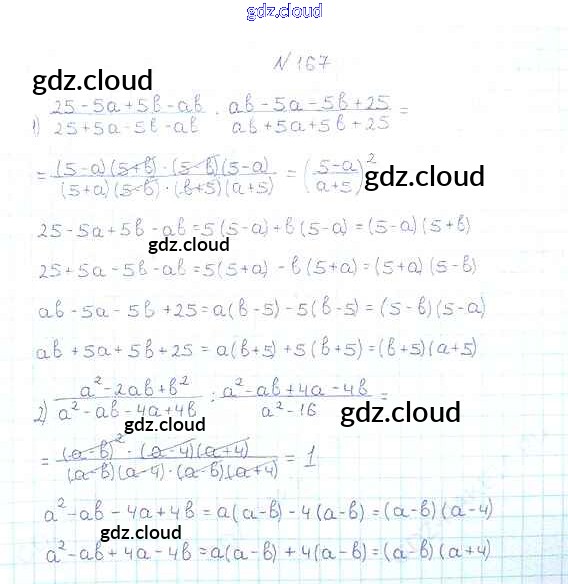 gdz.cloud
N 167
gdz.cloud
1) (25 - 5a + 5b - ab)/(25 + 5a - 5b - ab) · (ab - 5a - 5b + 25)/(ab + 5a + 5b + 25) =
= ((5-a)(5+b) · (5-b)(5-a))/((5+a)(5-b) · (b+5)(a+5)) = ((5-a)/(a+5))²
gdz.cloud
25 - 5a + 5b - ab = 5(5-a) + b(5-a) = (5-a)(5+b)
gdz.cloud
25 + 5a - 5b - ab = 5(5+a) - b(5+a) = (5+a)(5-b)
ab - 5a - 5b + 25 = a(b-5) - 5(b-5) = (5-b)(5-a)
ab + 5a + 5b + 25 = a(b+5) + 5(b+5) = (b+5)(a+5)
2) (a² - 2ab + b²)/(a² - ab - 4a + 4b) : (a² - ab + 4a - 4b)/(a² - 16) =
gdz.cloud
gdz.cloud
= ((a-b)² · (a-4)(a+4))/((a-b)(a-4) · (a-b)(a+4)) = 1
a² - ab - 4a + 4b = a(a-b) - 4(a-b) = (a-b)(a-4)
gdz.cloud
a² - ab + 4a - 4b = a(a-b) + 4(a-b) = (a-b)(a+4)
gdz.cloud